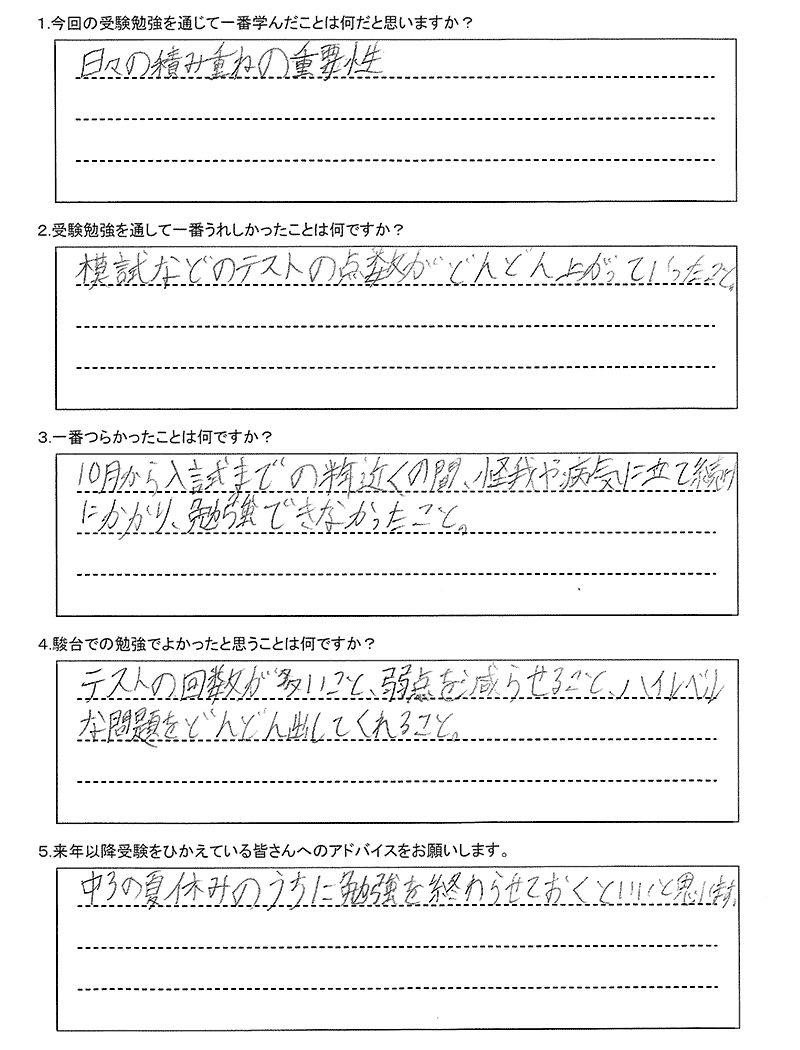 1.今回の受験勉強を通じて一番学んだことは何だと思いますか？
日々の積み重ねの重要性
2.受験勉強を通して一番うれしかったことは何ですか？
模試などのテストの点数がどんどん上がっていったこと。
3.一番つらかったことは何ですか？
10月から入試までの半年近くの間、怪我や病気に立て続け
にかかり、勉強できなかったこと。
4.駿台での勉強でよかったと思うことは何ですか？
テストの回数が多いこと、弱点を減らせること、ハイレベル
な問題をどんどん出してくれること。
5.来年以降受験をひかえている皆さんへのアドバイスをお願いします。
中3の夏休みのうちに勉強を終わらせておくといいと思います。